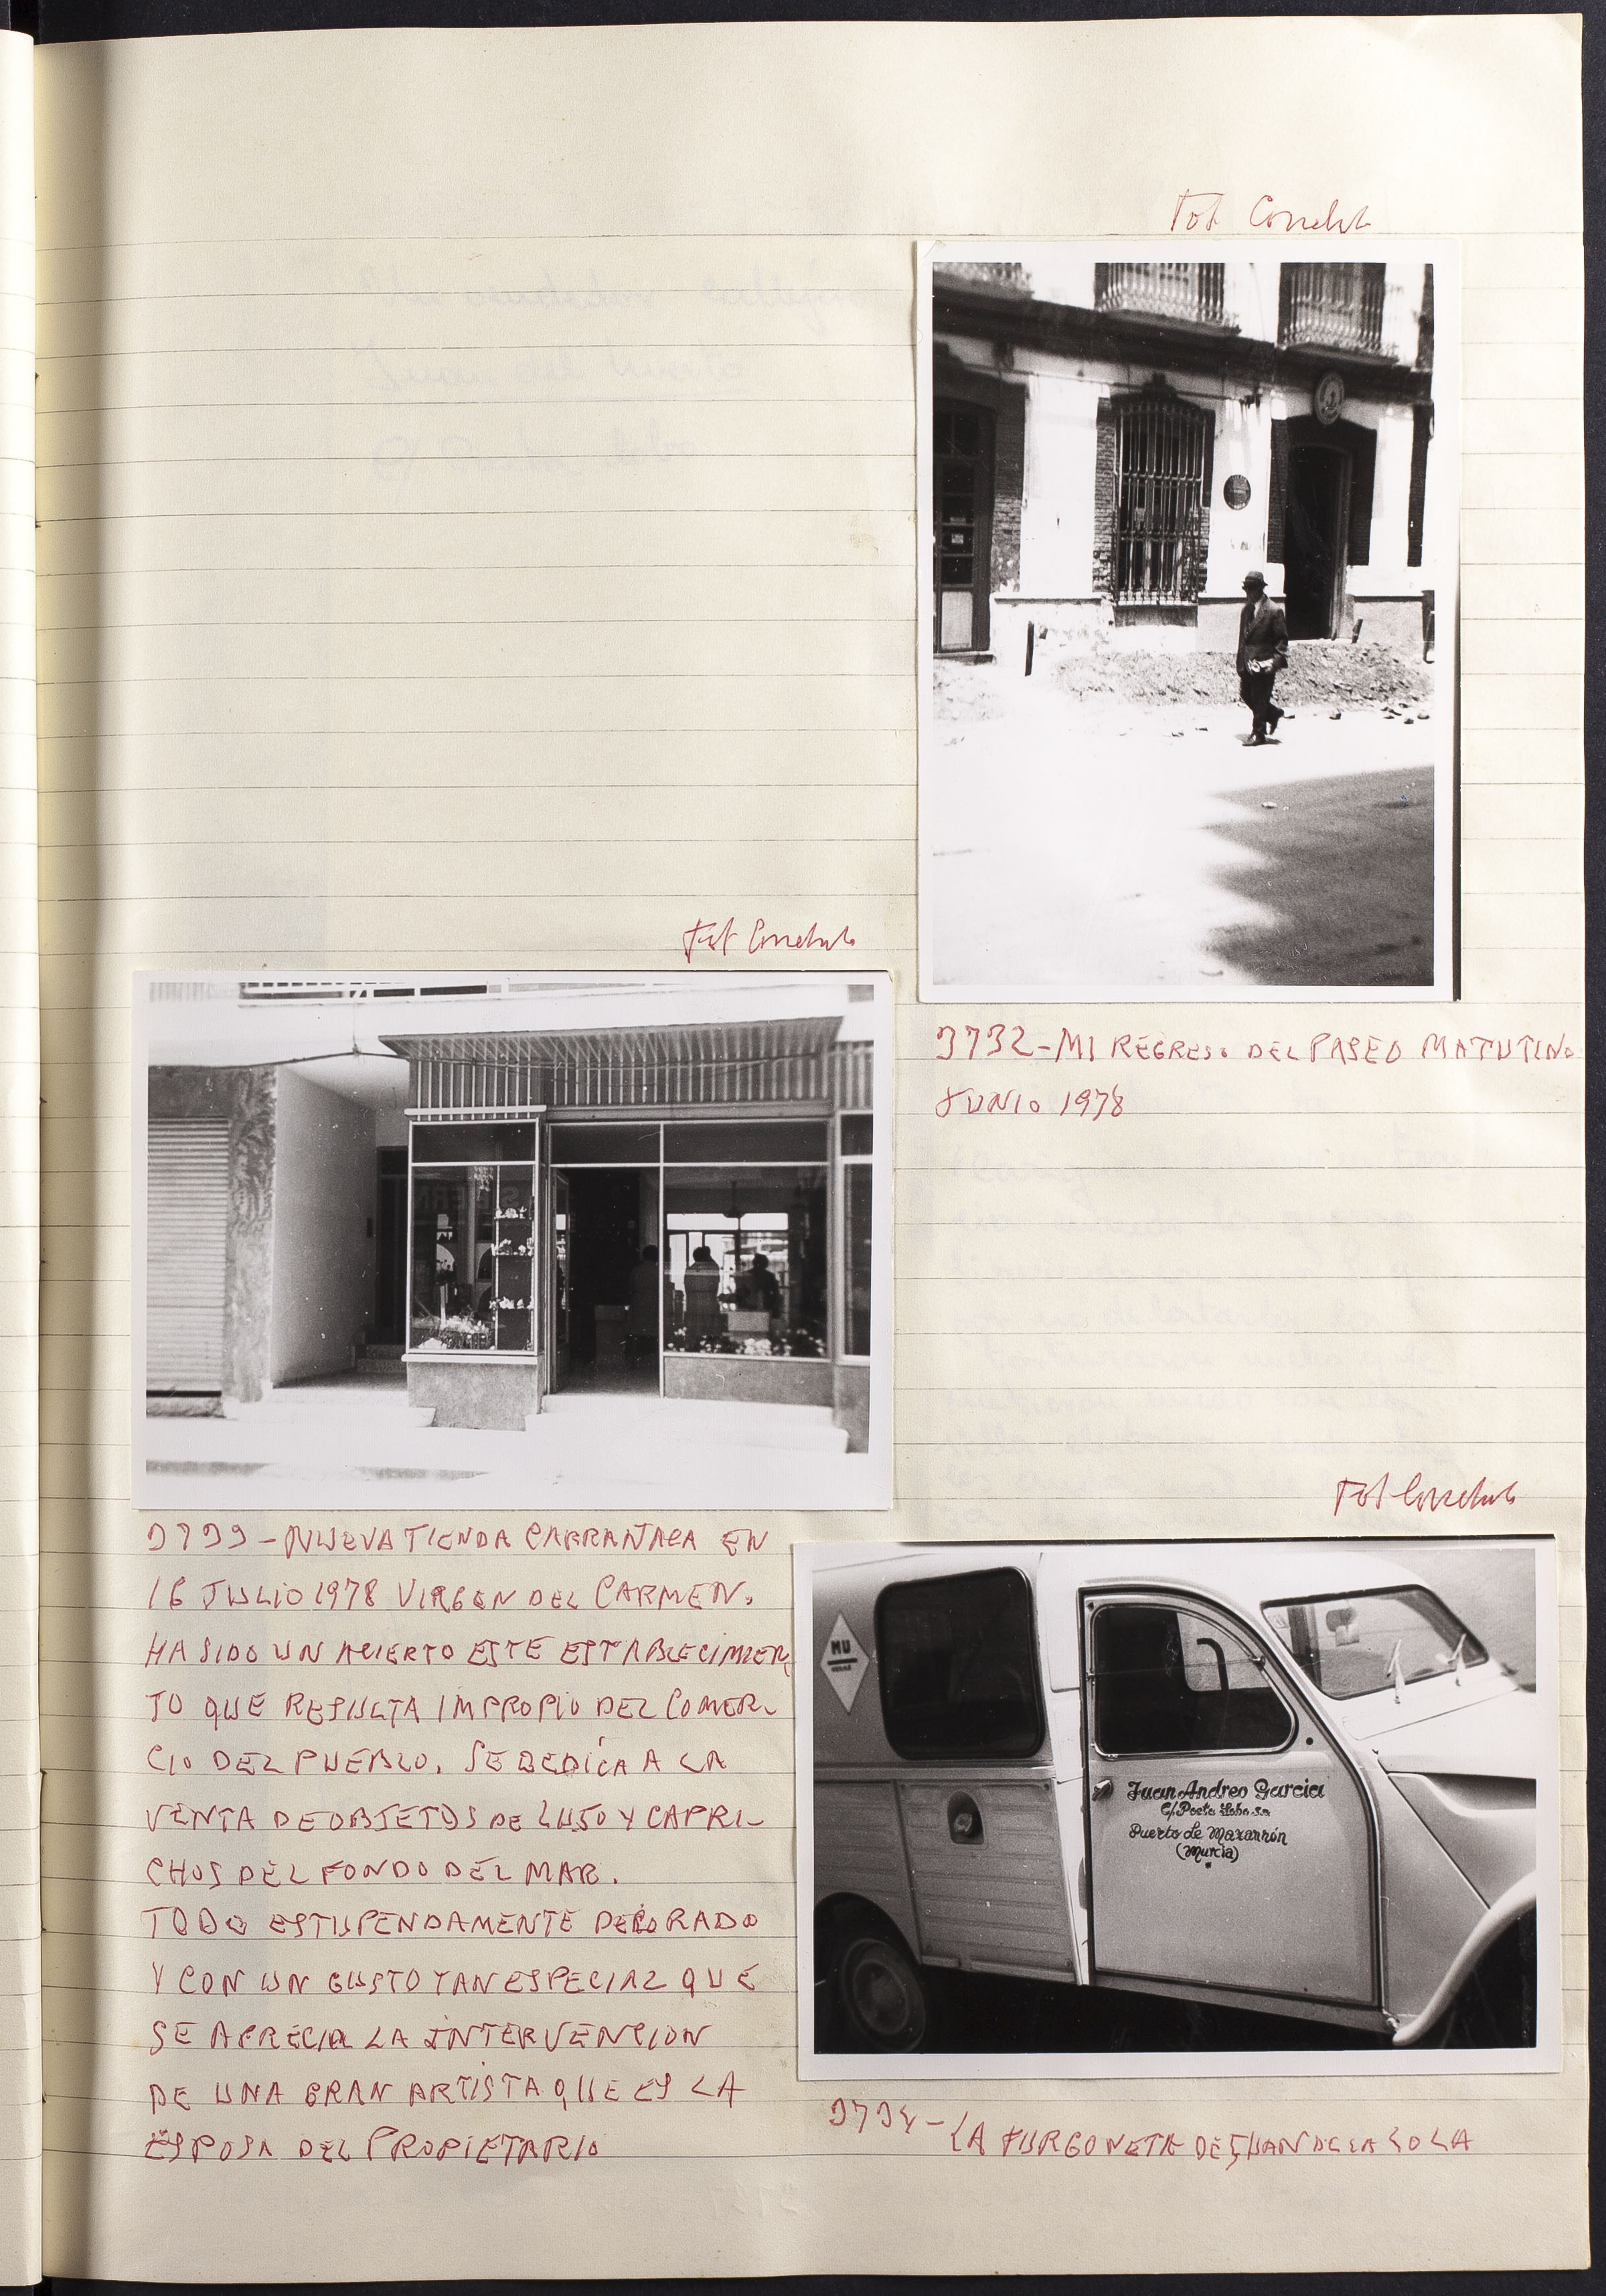 Fot Conchita
3732-MI REGRESO DEL PASEO MATUTINO
JUNIO 1978
Fot Conchita
3733-NUEVA TIENDA CARRANACA EN
16 JULIO 1978 VIRGEN DEL CARMEN.
HA SIDO UN ACIERTO ESTE ESTABLECIMIEN
TO QUE RESULTA IMPROPIO DEL COMER-
CIO DEL PUEBLO. SE DEDICA A LA
VENTA DE OBJETOS DE LUJO Y CAPRI-
CHOS DEL FONDO DEL MAR.
TODO ESTUPENDAMENTE DECORADO
Y CON UN GUSTO TAN ESPECIAL QUE
SE APRECIA LA INTERVENCION
DE UNA GRAN ARTISTA QUE ES LA
ESPOSA DEL PROPIETARIO
Fot Conchita
MU
Juan Andreo Garcia
C/. Poeta Lobo
Puerto de Mazarrón
(Murcia)
3734-LA FURGONETA DE JUAN DE LA LOLA